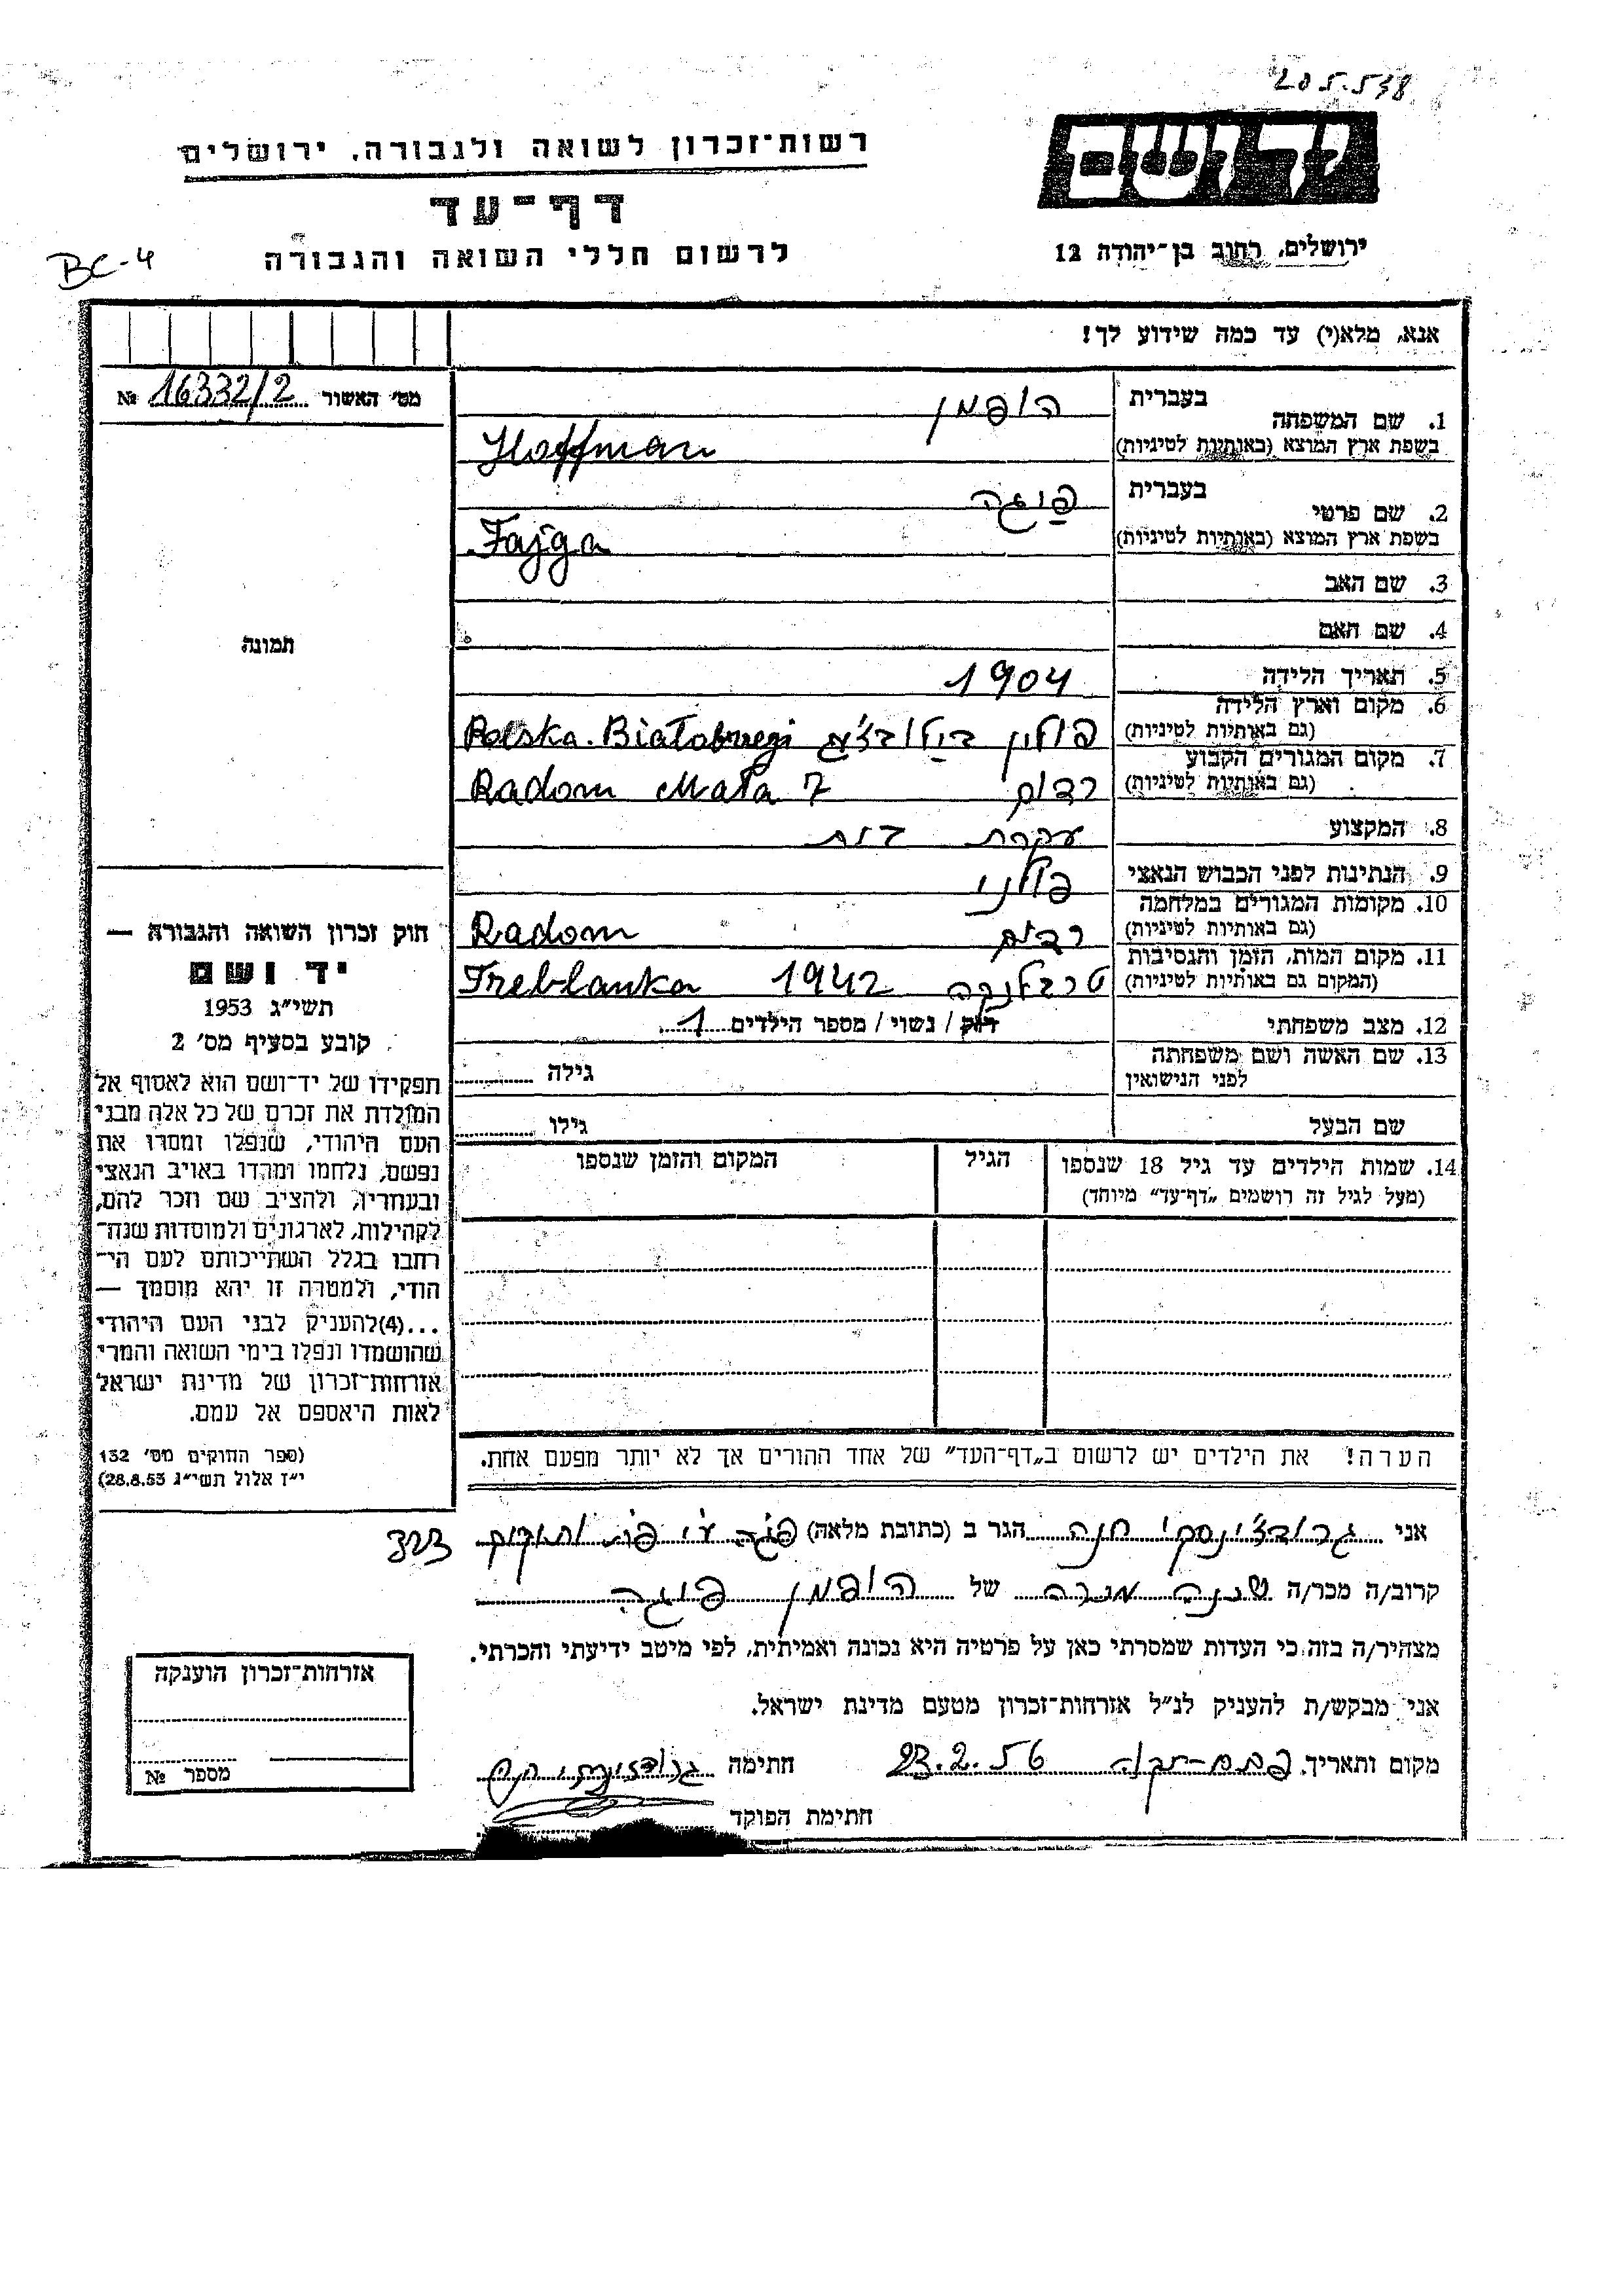 205.538
רשות־זכרון לשואה ולגבורה, ירושלים
יד ושם
דף־עד
ירושלים, רחוב בן־יהודה 12
לרשום חללי השואה והגבורה
BC-4
אנא, מלא(י) עד כמה שידוע לך!
מס׳ האשור 16332/2 №
1. שם המשפחה
בעברית הופמן
בשפת ארץ המוצא (באותיות לטיניות) Hoffman
2. שם פרטי
בעברית פיגה
בשפת ארץ המוצא (באותיות לטיניות) Fajga
3. שם האב
4. שם האם
תמונה
5. תאריך הלידה 1904
6. מקום וארץ הלידה
(גם באותיות לטיניות) פולין Polska. Białobrzegi
7. מקום המגורים הקבוע
(גם באותיות לטיניות) רדום Radom Mała 7
8. המקצוע עקרת בית
9. הנתינות לפני הכבוש הנאצי פולני
10. מקומות המגורים במלחמה
(גם באותיות לטיניות) רדום Radom
11. מקום המות, הזמן והנסיבות
(המקום גם באותיות לטיניות) טרבלנקה 1942 Treblanka
12. מצב משפחתי רווק / נשוי / מספר הילדים 1
13. שם האשה ושם משפחתה
לפני הנישואין גילה
שם הבעל גילו
14. שמות הילדים עד גיל 18 שנספו
(מעל לגיל זה רושמים „דף־עד” מיוחד)
הגיל
המקום והזמן שנספו
חוק זכרון השואה והגבורה —
יד ושם
תשי״ג 1953
קובע בסעיף מס׳ 2
תפקידו של יד־ושם הוא לאסוף אל
המולדת את זכרם של כל אלה מבני
העם היהודי, שנפלו ומסרו את
נפשם, נלחמו ומרדו באויב הנאצי
ובעוזריו, ולהציב שם וזכר להם,
לקהילות, לארגונים ולמוסדות שנח־
רבו בגלל השתייכותם לעם הי־
הודי, ולמטרה זו יהא מוסמך —
...(4)להעניק לבני העם היהודי
שהושמדו ונפלו בימי השואה והמרי
אזרחות־זכרון של מדינת ישראל
לאות היאספם אל עמם.
(ספר החוקים מס׳ 132
י״ז אלול תשי״ג 28.8.53)
הערה! את הילדים יש לרשום ב„דף־העד” של אחד ההורים אך לא יותר מפעם אחת.
אני גרודצ׳ינסקי חנה הגר ב (כתובת מלאה)
קרוב/ה מכר/ה שכנה מכרה של הופמן פיגה
מצהיר/ה בזה כי העדות שמסרתי כאן על פרטיה היא נכונה ואמיתית, לפי מיטב ידיעתי והכרתי.
אני מבקש/ת להעניק לנ״ל אזרחות־זכרון מטעם מדינת ישראל.
מקום ותאריך. פתח-תקוה 23.2.56 חתימה
חתימת הפוקד
אזרחות־זכרון הוענקה
מספר №